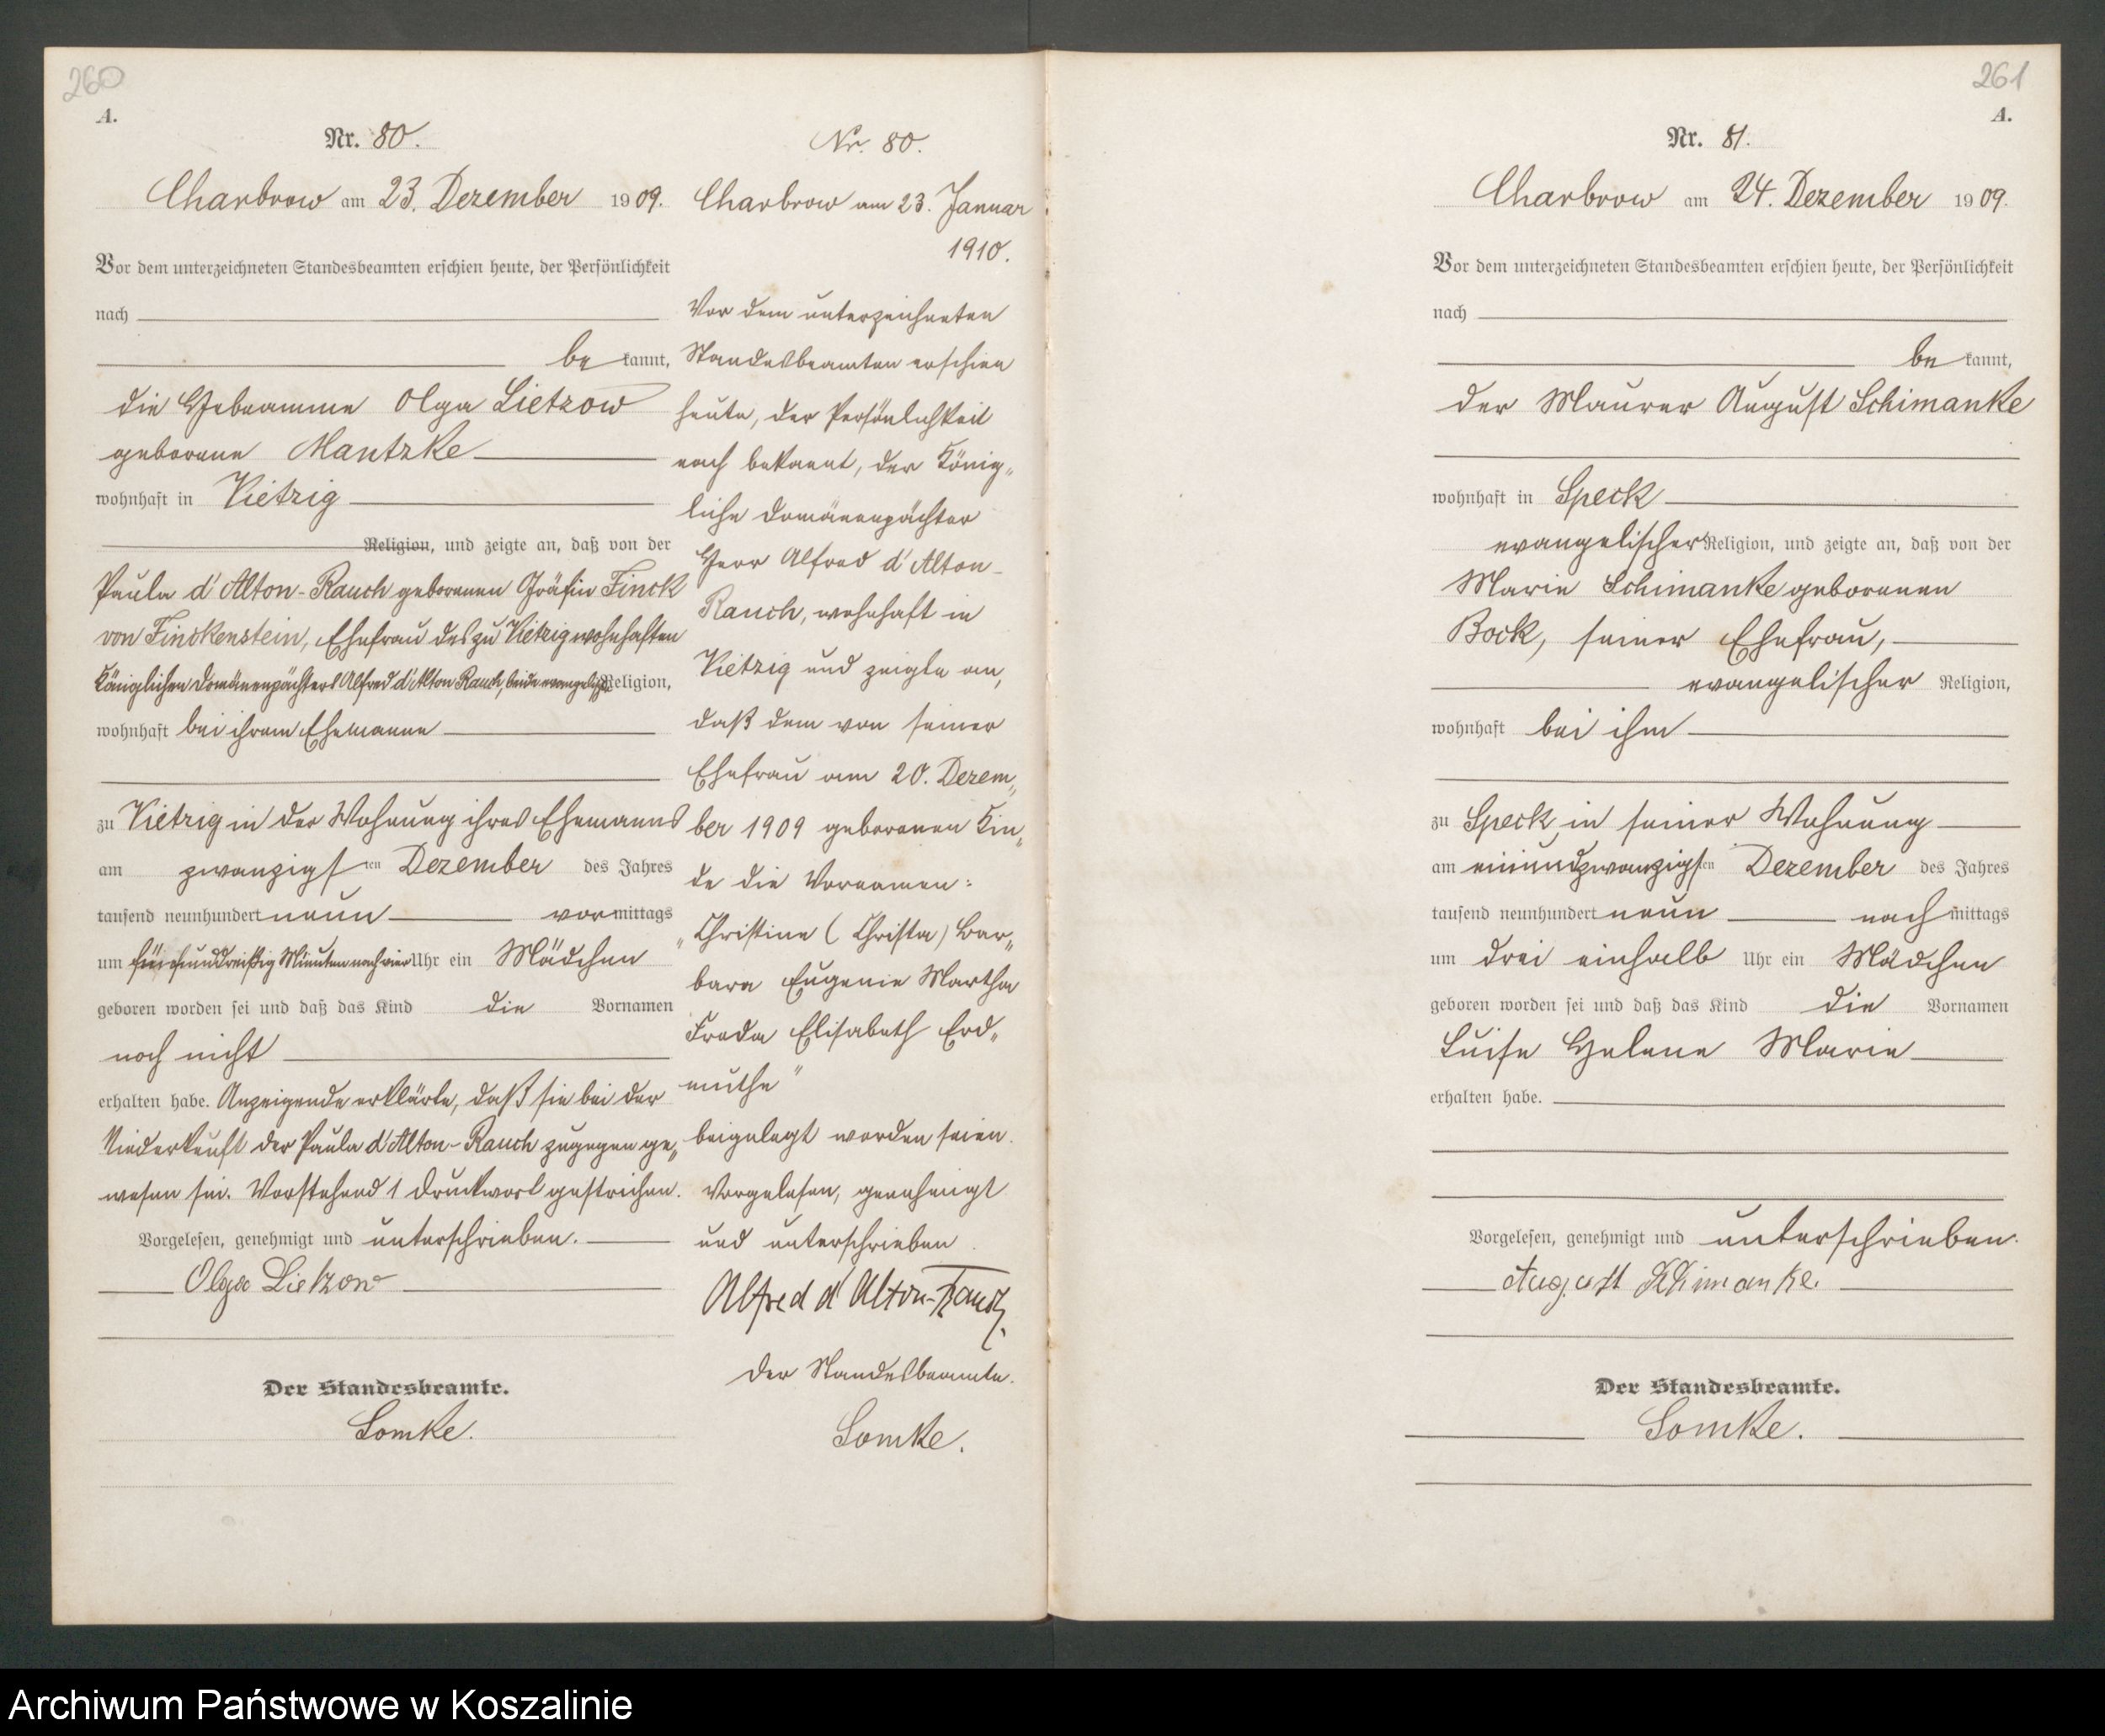 260
A.
Nr. 80.
Charbrow am 23. Dezember 1909.
Vor dem unterzeichneten Standesbeamten erschien heute, der Persönlichkeit
nach
be kannt,
die Hebeamme Olga Lietzow
geborene Mantzke
wohnhaft in Vietzig
Religion, und zeigte an, daß von der
Paula d'Alton-Rauch geborenen Gräfin Finck
von Finckenstein, Ehefrau des zu Vietzig wohnhaften
Königlichen Domänenpächters Alfred d'Alton Rauch, beide evangelisch Religion,
wohnhaft bei ihrem Ehemanne
zu Vietzig in der Wohnung ihres Ehemanns
am zwanzigsten Dezember des Jahres
tausend neunhundert neun vormittags
um fünfunddreißig Minuten nach vier Uhr ein Mädchen
geboren worden sei und daß das Kind die Vornamen
noch nicht
erhalten habe. Anzeigende erklärte, daß sie bei der
Niederkunft der Paula d'Alton-Rauch zugegen ge„
wesen sei. Vorstehend 1 Druckwort gestrichen.
Vorgelesen, genehmigt und unterschrieben.
Olga Lietzow
Der Standesbeamte.
Lomke.
Nr. 80.
Charbrow am 23. Januar
1910.
Vor dem unterzeichneten
Standesbeamten erschien
heute, der Persönlichkeit
nach bekannt, der König„
liche Domänenpächter
Herr Alfred d'Alton-
Rauch, wohnhaft in
Vietzig und zeigte an,
daß dem von seiner
Ehefrau am 20. Dezem„
ber 1909 geborenen Kin„
de die Vornamen:
„Christine (Christa) Bar„
bara Eugenie Martha
Freda Elisabeth Erd„
muthe"
beigelegt worden seien.
Vorgelesen, genehmigt
und unterschrieben
Alfred d'Alton-Rauch.
Der Standesbeamte.
Lomke.
261
A.
Nr. 81.
Charbrow am 24. Dezember 1909.
Vor dem unterzeichneten Standesbeamten erschien heute, der Persönlichkeit
nach
be kannt,
der Maurer August Schimanke
wohnhaft in Speck
evangelischer Religion, und zeigte an, daß von der
Marie Schimanke geborenen
Bock, seiner Ehefrau,
evangelischer Religion,
wohnhaft bei ihm
zu Speck in seiner Wohnung
am einundzwanzigsten Dezember des Jahres
tausend neunhundert neun nachmittags
um drei einhalb Uhr ein Mädchen
geboren worden sei und daß das Kind die Vornamen
Luise Helene Marie
erhalten habe.
Vorgelesen, genehmigt und unterschrieben.
August Schimanke.
Der Standesbeamte.
Lomke.
Archiwum Państwowe w Koszalinie